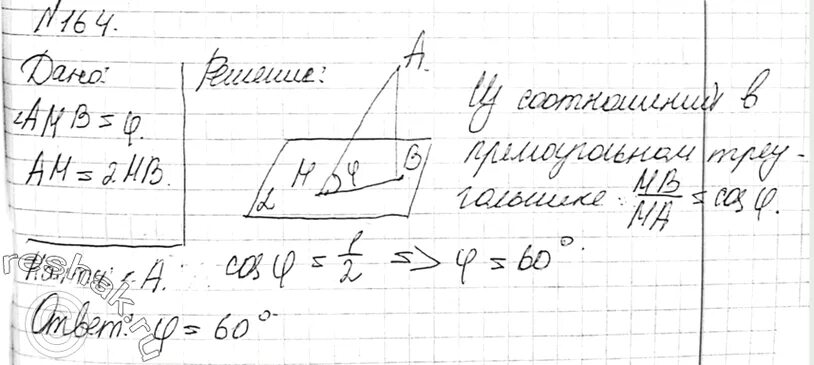 N164.
Дано:
∠AMB = φ.
AM = 2MB.
Найти: ∠A.
Решение:
A
M φ B
α
Из соотношений в
прямоугольном треу-
гольнике: MB/MA = cos φ.
cos φ = 1/2 => φ = 60°.
Ответ: φ = 60°
reshak.ru